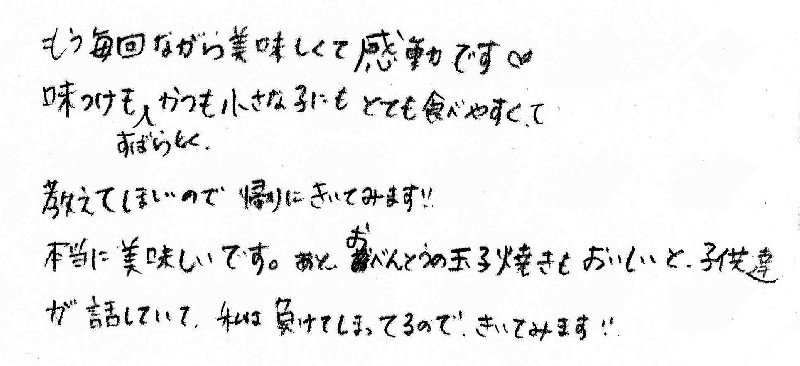 もう毎回ながら美味しくて感動です♡
味つけもすばらしく、かつも小さな子にもとても食べやすくて
教えてほしいので帰りにきいてみます!!
本当に美味しいです。あと、おべんとうの玉子焼きもおいしいと、子供達
が話していて、私は負けてしまってるので、きいてみます!!